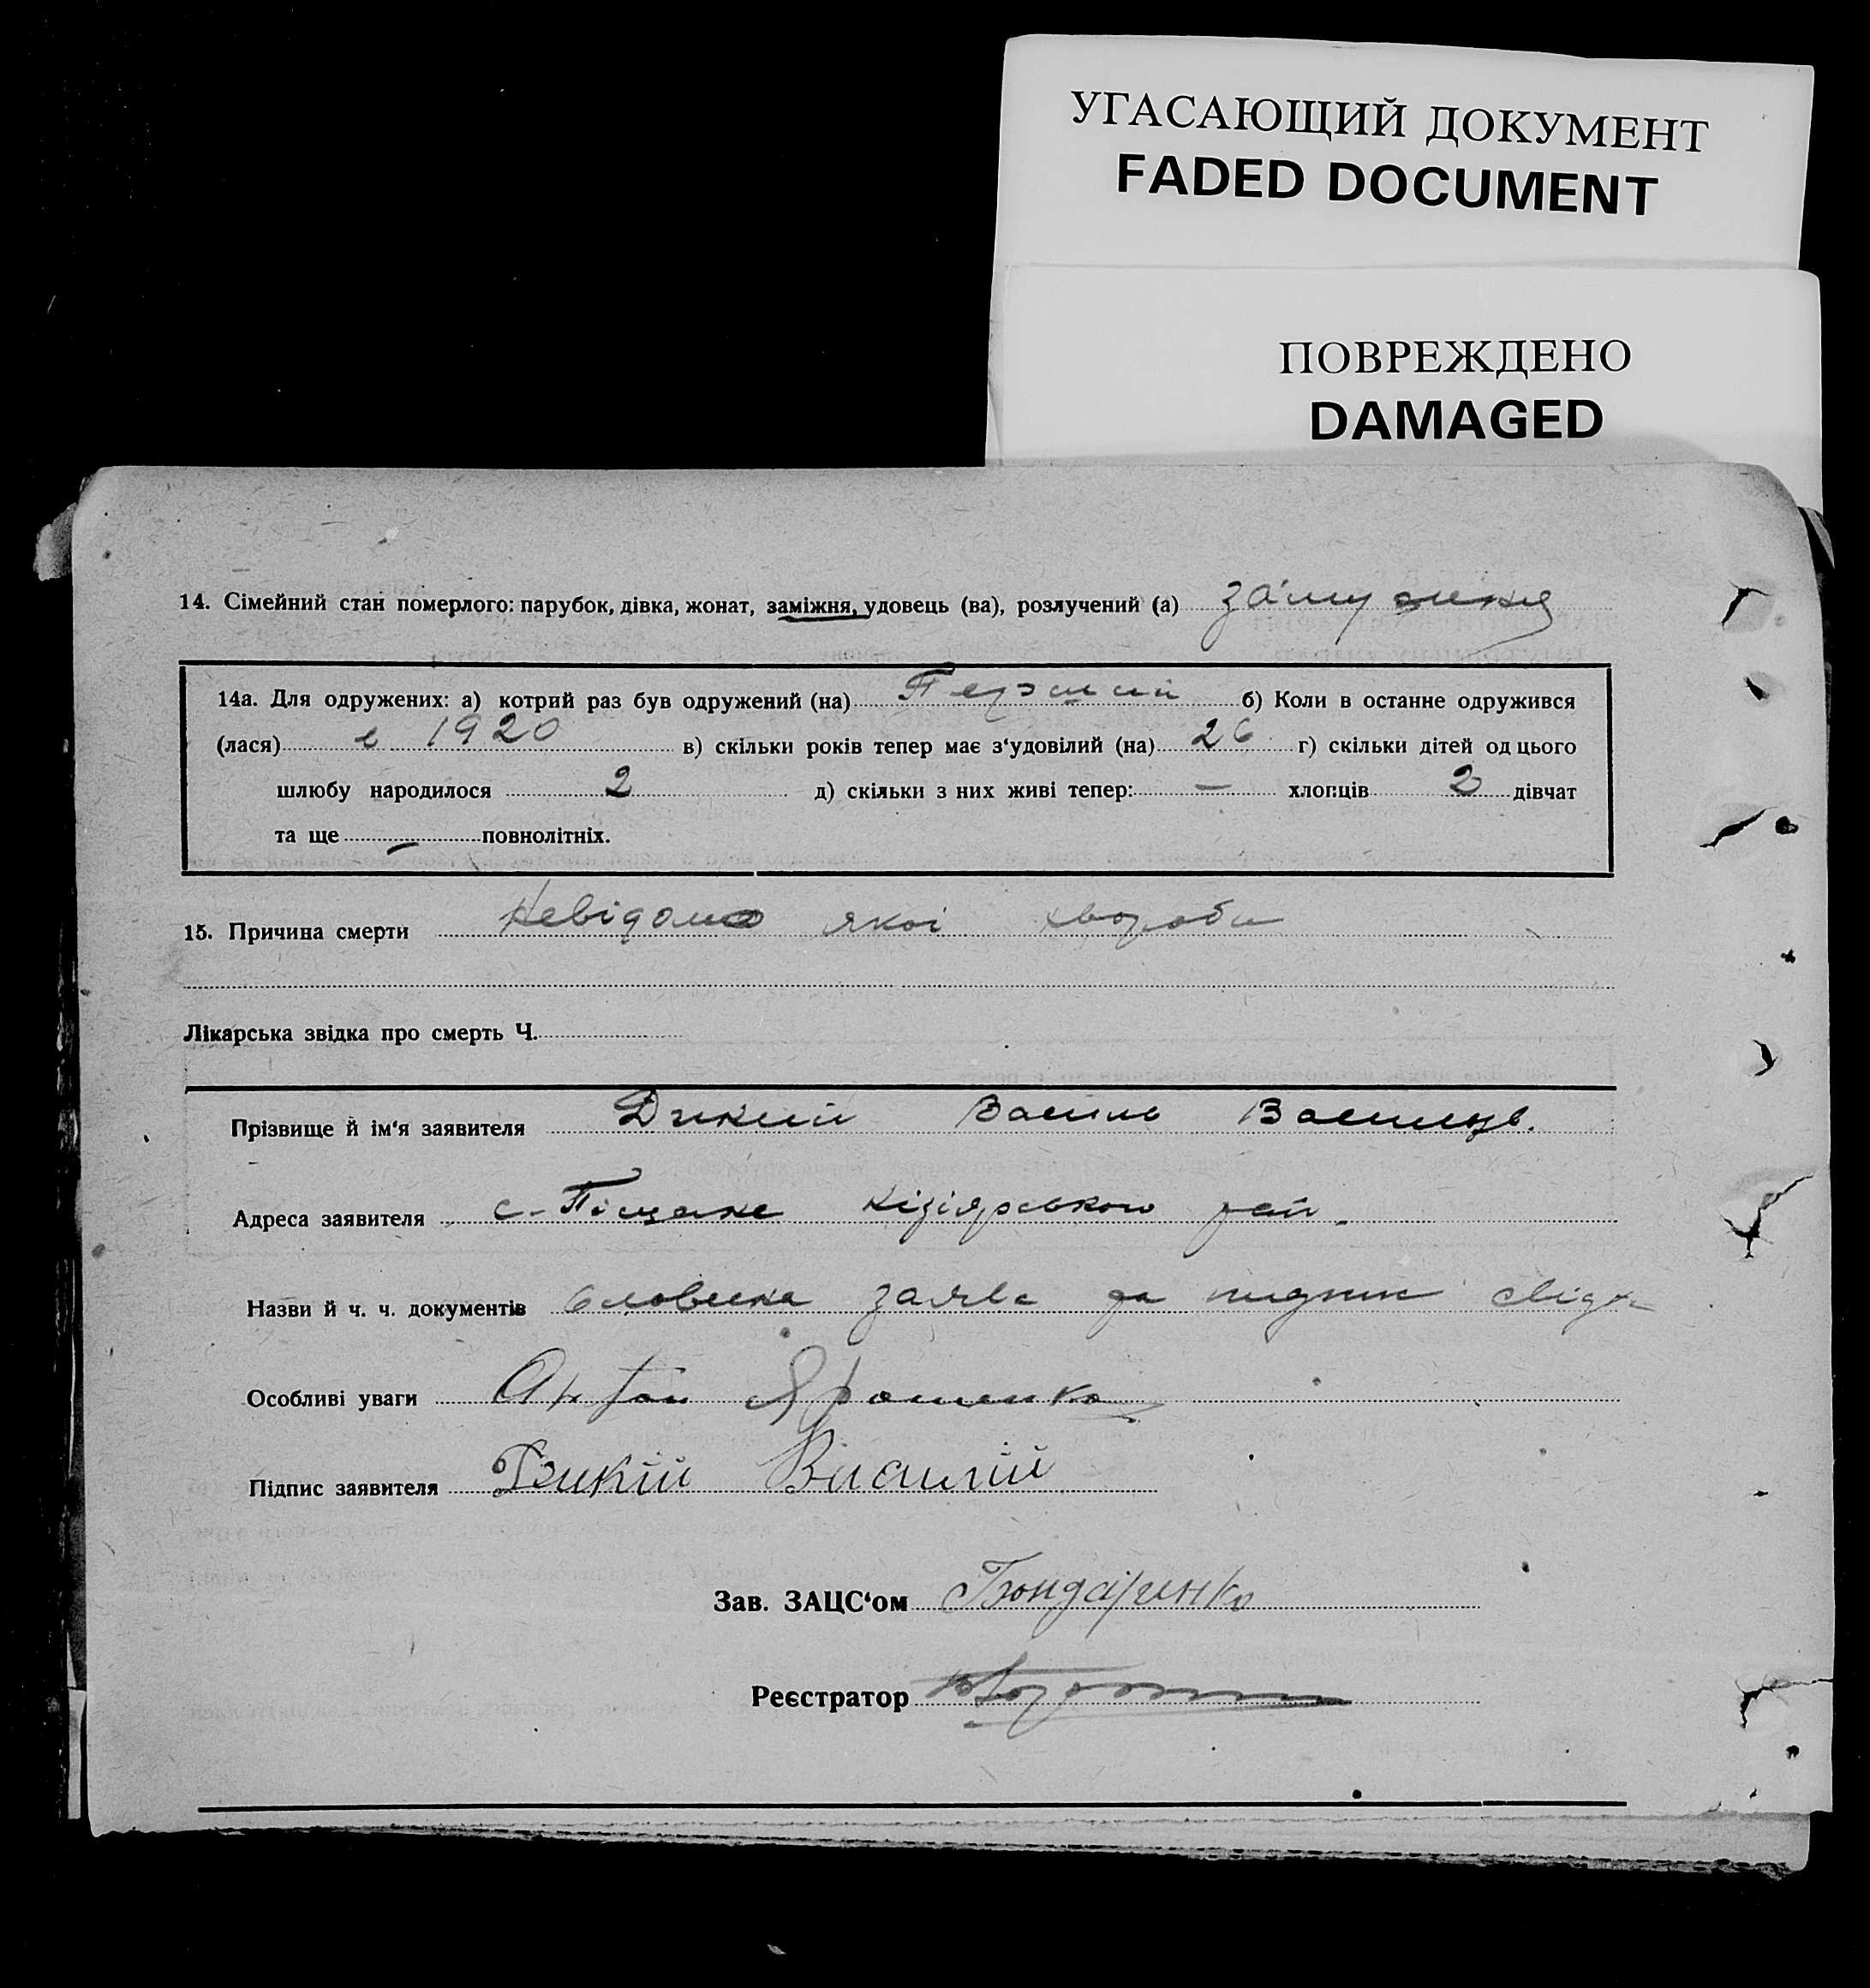 УГАСАЮЩИЙ ДОКУМЕНТ
FADED DOCUMENT
ПОВРЕЖДЕНО
DAMAGED
14. Сімейний стан померлого: парубок, дівка, жонат, заміжня, удовець (ва), розлучений (а) замужня
14а. Для одружених: а) котрий раз був одружений (на) Перший б) Коли в останне одружився
(лася) в 1920 в) скільки років тепер має з'удовілий (на) 26 г) скільки дітей од цього
шлюбу народилося 2 д) скільки з них живі тепер: — хлопців 2 дівчат
та ще — повнолітніх.
15. Причина смерти Невідомо якоі хвороби
Лікарська звідка про смерть Ч.
Прізвище й ім'я заявителя Дикий Василь Васильов.
Адреса заявителя с-Піщане Кізіярського рай.
Назви й ч. ч. документів Словесна заява да
Особливі уваги Антон Ярошенко
Підпис заявителя Дикій Василій
Зав. ЗАЦС'ом Бондаренко
Реєстратор